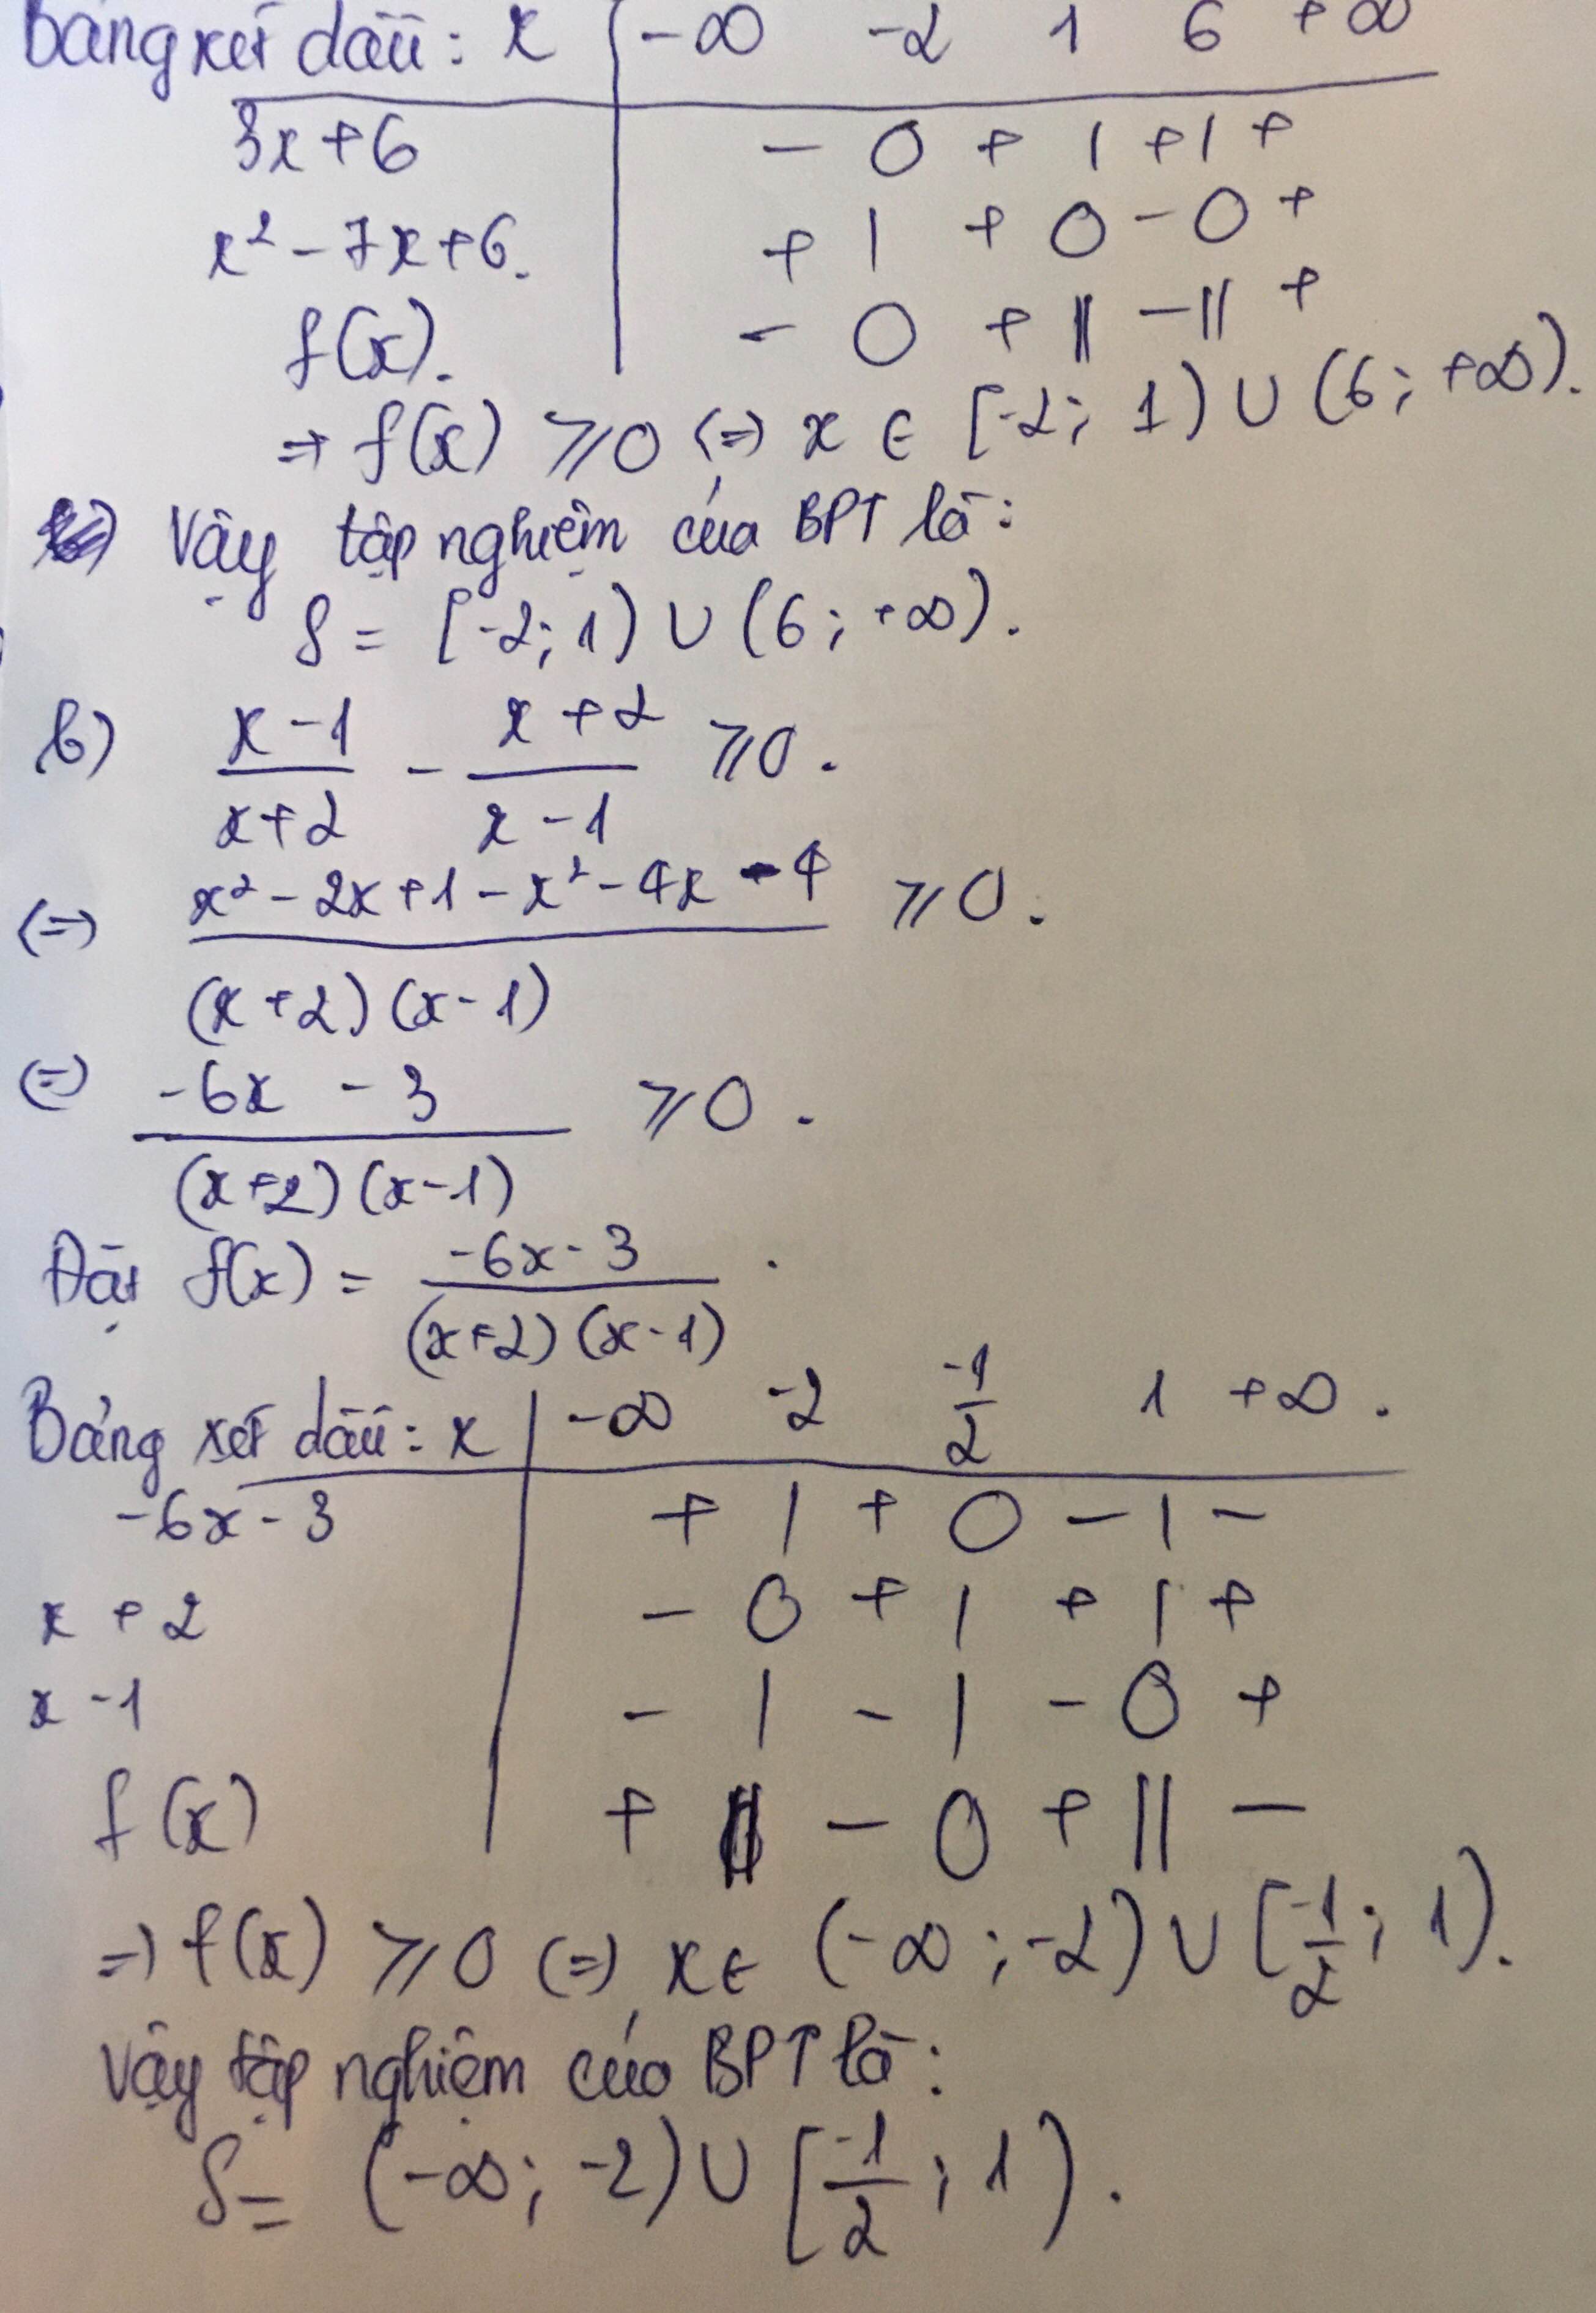 Bảng xét dấu: x | -∞ -2 1 6 +∞
3x+6 | - 0 + | + | +
x² - 7x+6. | + | + 0 - 0 +
f(x). | - 0 + || - || +
⇒ f(x) ⩾ 0 ⇔ x ∈ [-2; 1) ∪ (6; +∞).
Vậy tập nghiệm của BPT là:
S = [-2; 1) ∪ (6; +∞).
b) (x-1)/(x+2) - (x+2)/(x-1) ⩾ 0.
⇔ (x² - 2x + 1 - x² - 4x - 4)/((x+2)(x-1)) ⩾ 0.
⇔ (-6x - 3)/((x+2)(x-1)) ⩾ 0.
Đặt f(x) = (-6x-3)/((x+2)(x-1)).
Bảng xét dấu: x | -∞ -2 -1/2 1 +∞.
-6x-3 | + | + 0 - | -
x + 2 | - 0 + | + | +
x - 1 | - | - | - 0 +
f(x) | + || - 0 + || -
⇒ f(x) ⩾ 0 ⇔ x ∈ (-∞; -2) ∪ [-1/2; 1).
Vậy tập nghiệm của BPT là:
S = (-∞; -2) ∪ [-1/2; 1).